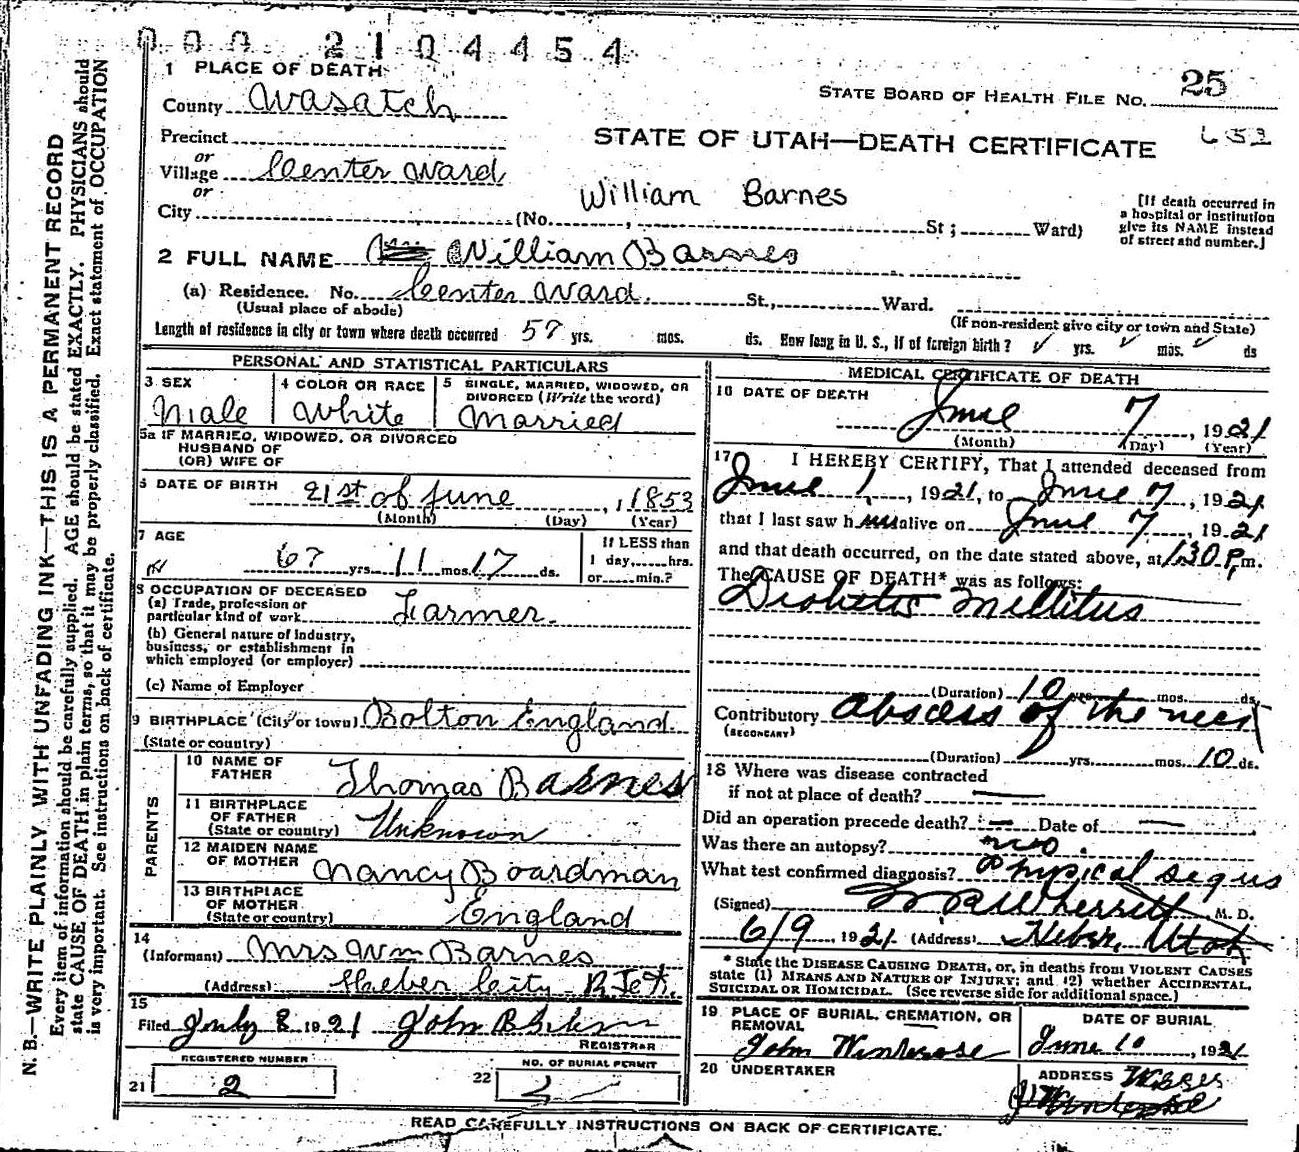 000 2104454
1 PLACE OF DEATH
County Wasatch
STATE BOARD OF HEALTH FILE NO. 25
Precinct
STATE OF UTAH—DEATH CERTIFICATE
or
Village Center Ward
or
William Barnes
City (No. , St; Ward)
[If death occurred in
a hospital or institution
give its NAME instead
of street and number.]
2 FULL NAME William Barnes
(a) Residence. No. Center Ward. St., Ward.
(Usual place of abode)
(If non-resident give city or town and State)
Length of residence in city or town where death occurred 57 yrs. mos. ds. How long in U. S., if of foreign birth? yrs. mos. ds
PERSONAL AND STATISTICAL PARTICULARS
3 SEX
Male
4 COLOR OR RACE
White
5 SINGLE, MARRIED, WIDOWED, OR
DIVORCED (Write the word)
Married
5a IF MARRIED, WIDOWED, OR DIVORCED
HUSBAND OF
(OR) WIFE OF
6 DATE OF BIRTH 21st of June, 1853
(Month) (Day) (Year)
7 AGE
67 yrs 11 mos. 17 ds.
If LESS than
1 day, hrs.
or min.?
8 OCCUPATION OF DECEASED
(a) Trade, profession or
particular kind of work Farmer.
(b) General nature of industry,
business, or establishment in
which employed (or employer)
(c) Name of Employer
9 BIRTHPLACE (City or town) Bolton England
(State or country)
PARENTS
10 NAME OF
FATHER Thomas Barnes
11 BIRTHPLACE
OF FATHER
(State or country) Unknown
12 MAIDEN NAME
OF MOTHER Nancy Boardman
13 BIRTHPLACE
OF MOTHER
(State or country) England
14
(Informant) Mrs Wm Barnes
(Address) Heber City
15
Filed July 8 1921 John B
REGISTRAR
REGISTERED NUMBER
21 2
NO. OF BURIAL PERMIT
22
MEDICAL CERTIFICATE OF DEATH
16 DATE OF DEATH
June 7, 1921
(Month) (Day) (Year)
17 I HEREBY CERTIFY, That I attended deceased from
June 1, 1921, to June 7, 1921
that I last saw him alive on June 7, 1921
and that death occurred, on the date stated above, at 1:30 P.m.
The CAUSE OF DEATH* was as follows:
Diabetis Mellitus
(Duration) 10 yrs mos. ds.
Contributory abscess of the neck
(SECONDARY)
(Duration) yrs. mos. 10 ds.
18 Where was disease contracted
if not at place of death?
Did an operation precede death? — Date of —
Was there an autopsy? no.
What test confirmed diagnosis? Physical signs
(Signed) M. D.
6/9, 1921 (Address) Heber, Utah
* State the DISEASE CAUSING DEATH, or, in deaths from VIOLENT CAUSES
state (1) MEANS AND NATURE OF INJURY; and (2) whether ACCIDENTAL,
SUICIDAL OR HOMICIDAL. (See reverse side for additional space.)
19 PLACE OF BURIAL, CREMATION, OR
REMOVAL
John Winterose
DATE OF BURIAL
June 10, 1921
20 UNDERTAKER
ADDRESS
READ CAREFULLY INSTRUCTIONS ON BACK OF CERTIFICATE.
N. B.—WRITE PLAINLY WITH UNFADING INK—THIS IS A PERMANENT RECORD
Every item of information should be carefully supplied. AGE should be stated EXACTLY. PHYSICIANS should
state CAUSE OF DEATH in plain terms, so that it may be properly classified. Exact statement of OCCUPATION
is very important. See instructions on back of certificate.